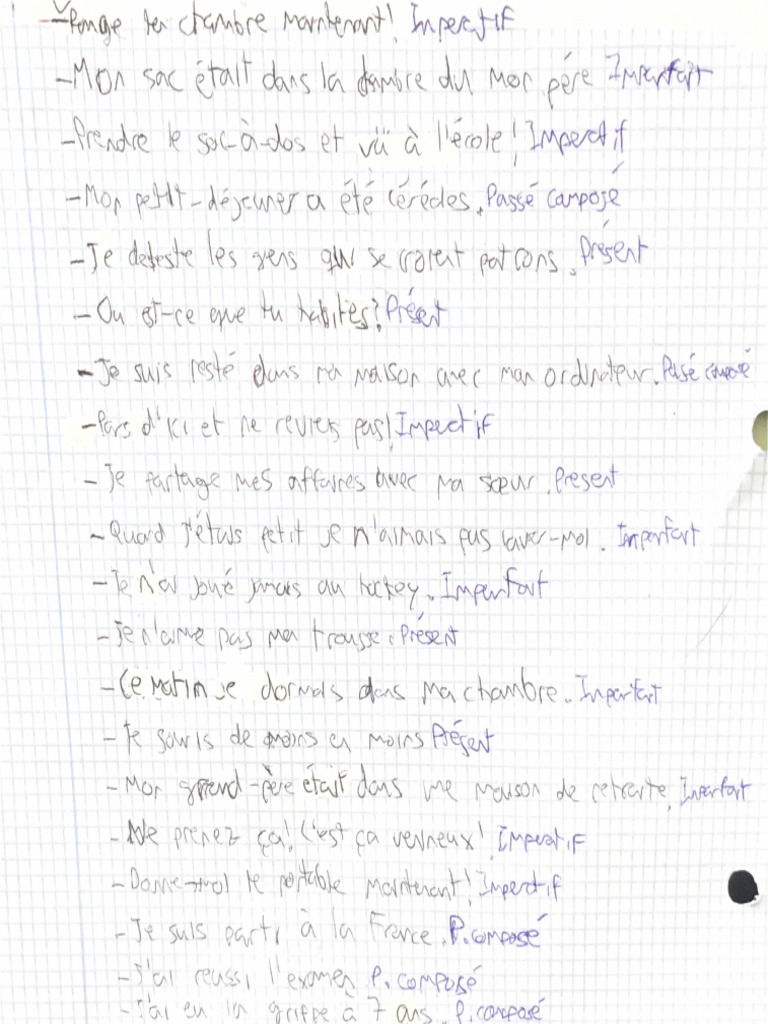 -Range ta chambre maintenant! Imperatif
-Mon sac était dans la chambre du mon pére Imparfait
-Prendre le sac-à-dos et va à l'école! Imperatif
-Mon petit-déjeuner a été céréales. Passé composé
-Je deteste les gens qui se croient patrons. Présent
-Ou est-ce que tu habites? Présent
-Je suis resté dans ma maison avec mon ordinateur. Passé composé
-Pars d'ici et ne reviens pas! Imperatif
-Je partage mes affaires avec ma sœur. Present
-Quand j'étais petit je n'aimais pas laver-moi. Imparfait
-Je n'ai joué jamais au hockey. Imparfait
-Je n'aime pas ma trousse. Présent
-Ce matin je dormais dans ma chambre. Imparfait
-Je souris de moins en moins Présent
-Mon grand-père était dans une maison de retraite. Imparfait
-Ne prenez ça! C'est ça venneux! Imperatif
-Donne-moi le portable maintenant! Imperatif
-Je suis parti à la France. P.composé
-J'ai reussi l'examen. P. composé
-J'ai eu la grippe à 7 ans. P.composé